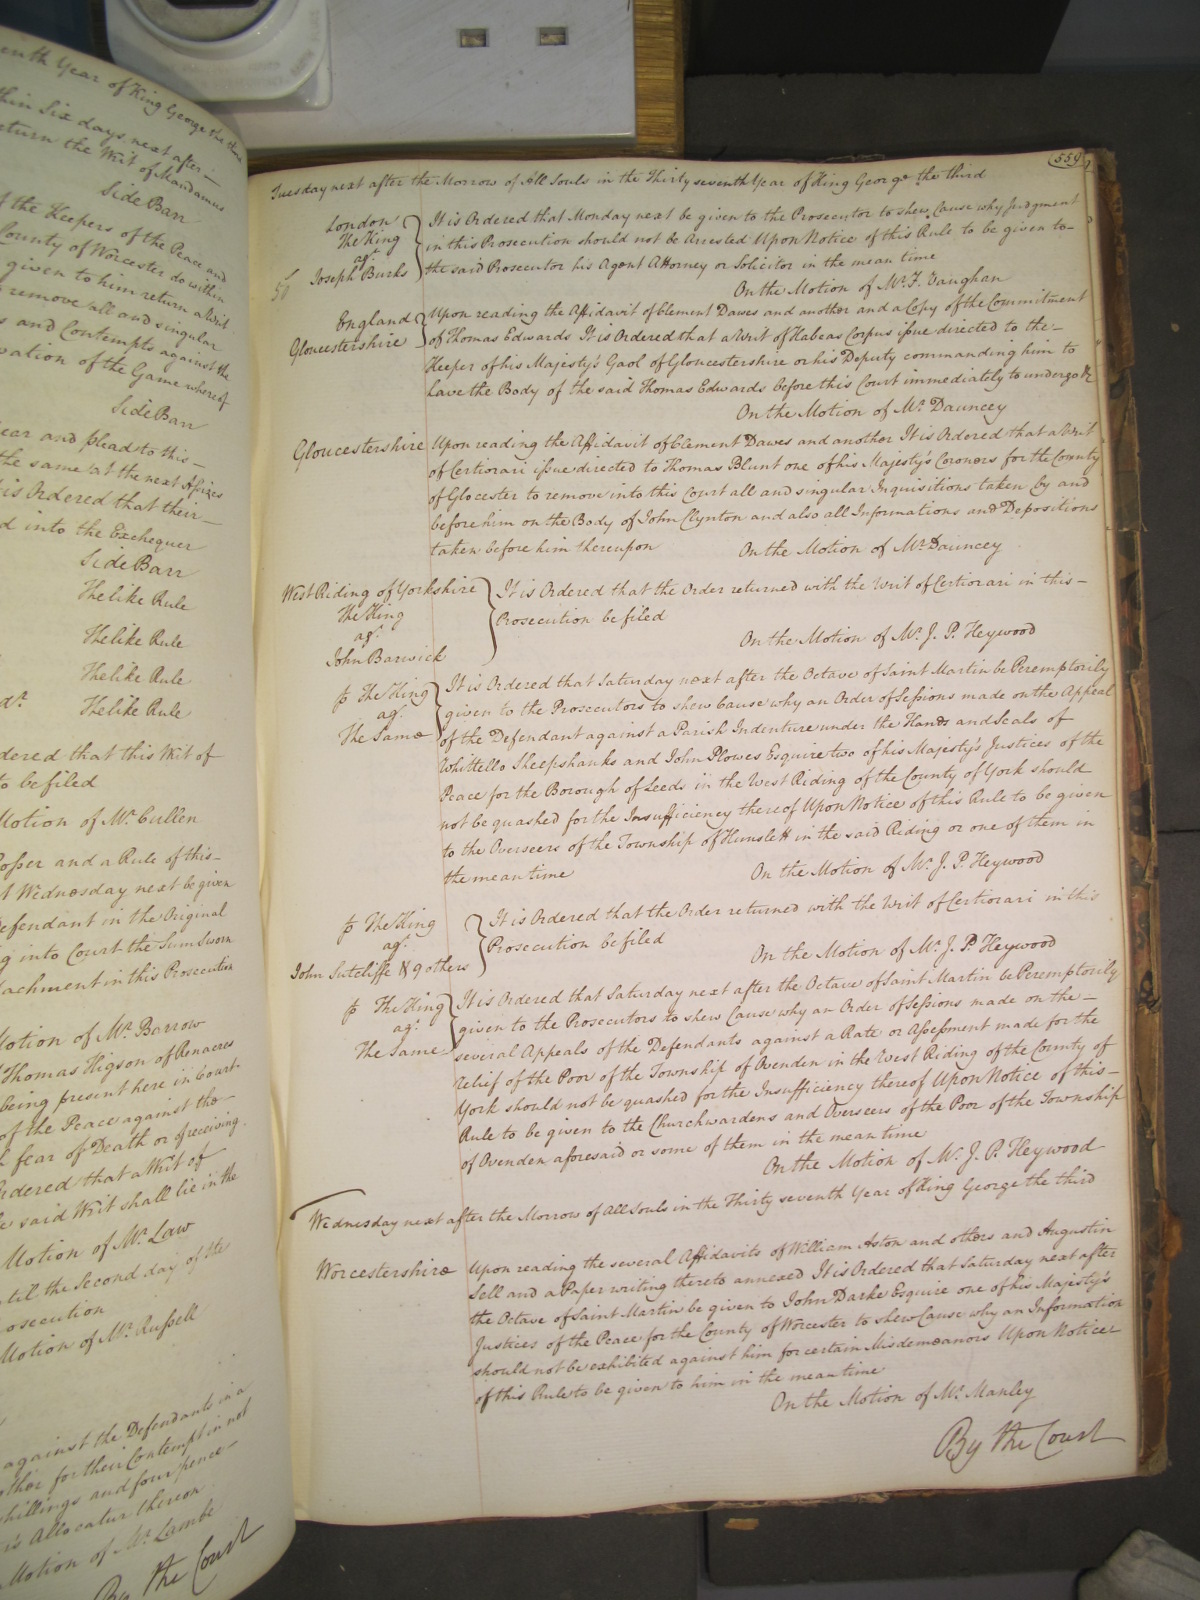 enth Year of King George the third
thin Six days next after
eturn the Writ of Mandamus
Side Barr
f the Keepers of the Peace and
County of Worcester do within
given to him return a Writ
remove all and singular
s and Contempts against the
vation of the Game whereof
Side Barr
ear and plead to this
the same at the next Assizes
is Ordered that their
d into the Exchequer
Side Barr
The like Rule
The like Rule
The like Rule
The like Rule
dered that this Writ of
to be filed
Motion of Mr. Cullen
Rosser and a Rule of this
t Wednesday next be given
efendant in the Original
g into Court the Sum Sworn
tachment in this Prosecution
Motion of Mr. Barrow
Thomas Higson of Renacres
being present here in Court
of the Peace against the
fear of Death or of receiving
rdered that a Writ of
e said Writ shall lie in the
Motion of Mr. Law
til the Second day of the
osecution
Motion of Mr. Russell
against the Defendants in a
ther for their Contempt in not
shillings and four pence
's Allocatur thereon
Motion of Mr. Lambe
By the Court
559
Tuesday next after the Morrow of All Souls in the Thirty seventh Year of King George the third
London
The King
agt.
Joseph Burks
It is Ordered that Monday next be given to the Prosecutor to shew Cause why Judgment
in this Prosecution should not be Arrested Upon Notice of this Rule to be given to
the said Prosecutor his Agent Attorney or Solicitor in the mean time
On the Motion of Mr. F. Vaughan
England
Gloucestershire
Upon reading the Affidavit of Clement Dawes and another and a Copy of the Commitment
of Thomas Edwards It is Ordered that a Writ of Habeas Corpus issue directed to the
Keeper of his Majesty's Gaol of Gloucestershire or his Deputy commanding him to
have the Body of the said Thomas Edwards before this Court immediately to undergo &c
On the Motion of Mr. Dauncey
Gloucestershire
Upon reading the Affidavit of Clement Dawes and another It is Ordered that a Writ
of Certiorari issue directed to Thomas Blunt one of his Majesty's Coroners for the County
of Glocester to remove into this Court all and singular Inquisitions taken by and
before him on the Body of John Clynton and also all Informations and Depositions
taken before him thereupon
On the Motion of Mr. Dauncey
West Riding of Yorkshire
The King
agt.
John Barwick
It is Ordered that the Order returned with the Writ of Certiorari in this
Prosecution be filed
On the Motion of Mr. J. P. Heywood
The King
agt.
The Same
It is Ordered that Saturday next after the Octave of Saint Martin be Peremptorily
given to the Prosecutors to shew Cause why an Order of Sessions made on the Appeal
of the Defendant against a Parish Indenture under the Hands and Seals of
Whittello Sheepshanks and John Plowes Esquire two of his Majesty's Justices of the
Peace for the Borough of Leeds in the West Riding of the County of York should
not be quashed for the Insufficiency thereof Upon Notice of this Rule to be given
to the Overseers of the Township of Hunslett in the said Riding or one of them in
the mean time
On the Motion of Mr. J. P. Heywood
The King
agt.
John Sutcliffe & 9 others
It is Ordered that the Order returned with the Writ of Certiorari in this
Prosecution be filed
On the Motion of Mr. J. P. Heywood
The King
agt.
The Same
It is Ordered that Saturday next after the Octave of Saint Martin be Peremptorily
given to the Prosecutors to shew Cause why an Order of Sessions made on the
several Appeals of the Defendants against a Rate or Assessment made for the
relief of the Poor of the Township of Ovenden in the West Riding of the County of
York should not be quashed for the Insufficiency thereof Upon Notice of this
Rule to be given to the Churchwardens and Overseers of the Poor of the Township
of Ovenden aforesaid or some of them in the mean time
On the Motion of Mr. J. P. Heywood
Wednesday next after the Morrow of All Souls in the Thirty seventh Year of King George the third
Worcestershire
Upon reading the several Affidavits of William Aston and others and Augustin
Sell and a Paper writing thereto annexed It is Ordered that Saturday next after
the Octave of Saint Martin be given to John Darke Esquire one of his Majesty's
Justices of the Peace for the County of Worcester to shew Cause why an Information
should not be exhibited against him for certain Misdemeanors Upon Notice
of this Rule to be given to him in the mean time
On the Motion of Mr. Manley
By the Court